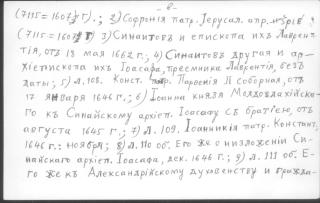 -2-
(7115=1607 г).; 2) Софронія патр. Іерусал. апр.
(7115=1607 г) 3) Синаитовъ и епископа ихъ Лаврен-
тія, отъ 18 мая 1662 г.; 4) Синаитовъ другая и ар-
хіепископа ихъ Іоасафа, преемника Лаврентія, безъ
даты; 5) л. 108. Конст. патр. Парѳенія II соборная, отъ
17 января 1646 г.; 6) Іоанна князя Молдовлахійска-
го къ Синайскому архіеп. Іоасафу съ братіею, отъ
августа 1645 г.; 7) л. 109. Іоанникія патр. Констант.
1646 г. ноября; 8) л. 110 об. Его же о низложении Си-
найскаго архіеп. Іоасафа, дек. 1646 г.; 9) л. 111 об. Е-
го же къ Александрійскому духовенству и гражда-